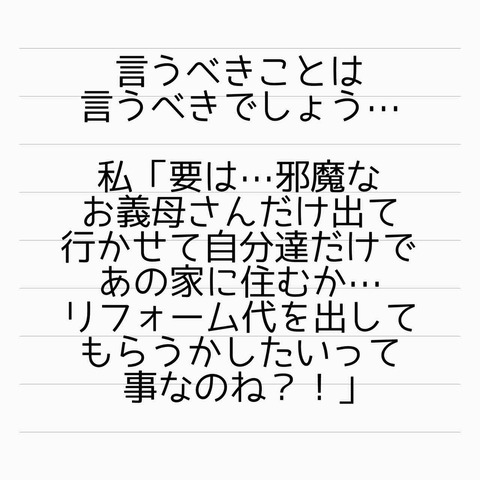 言うべきことは
言うべきでしょう…
私「要は…邪魔な
お義母さんだけ出て
行かせて自分達だけで
あの家に住むか…
リフォーム代を出して
もらうかしたいって
事なのね？！」